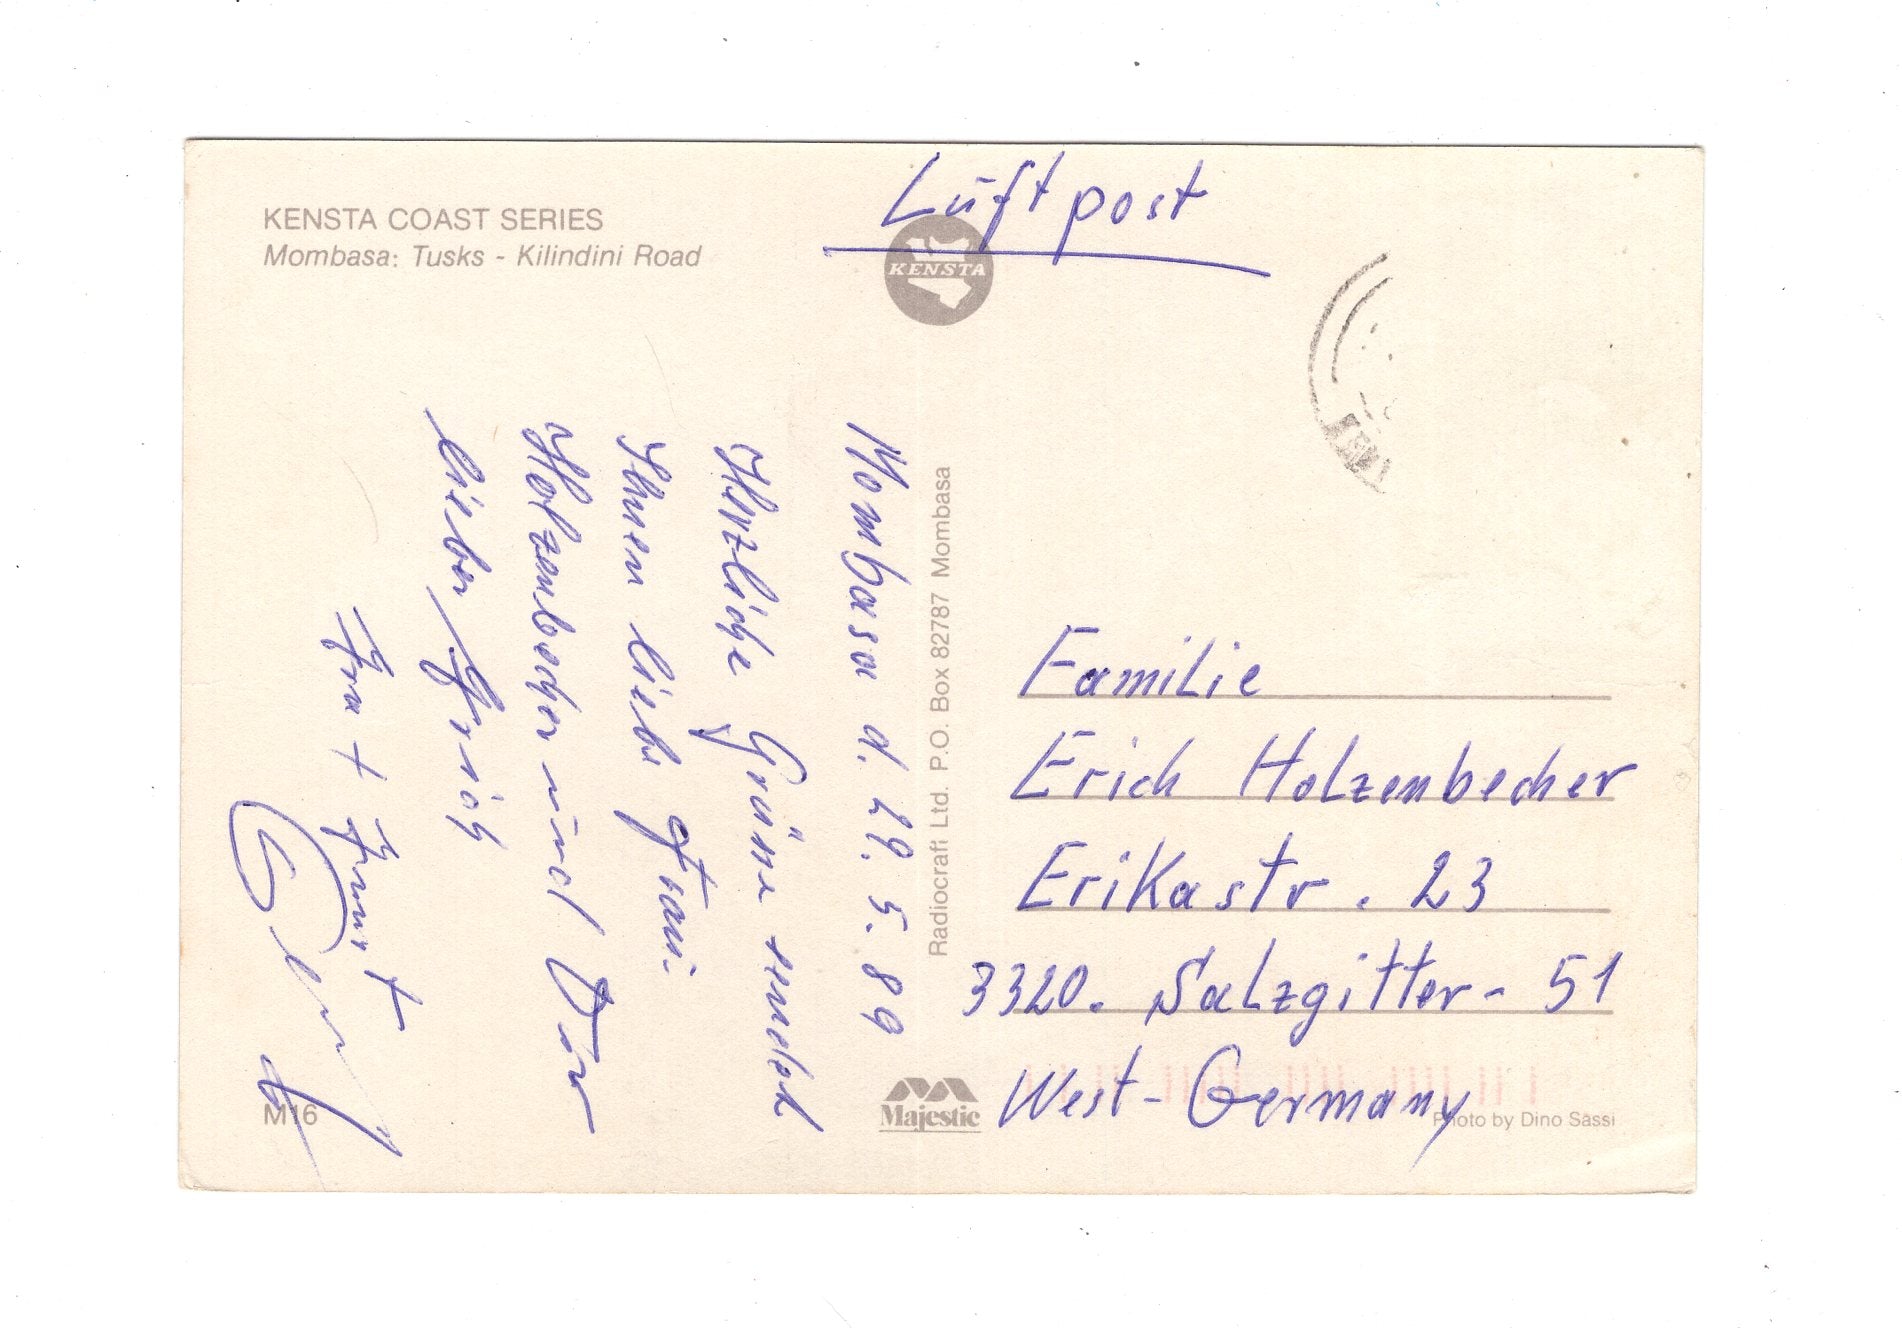 KENSTA COAST SERIES
Mombasa: Tusks - Kilindini Road
Luftpost
KENSTA
Mombasa d. 29. 5. 89
Herzliche Grüße sendet
Ihnen liebe Frau
Holzenbecher und Dir
lieber Erich
Ernst
M16
Radiocraft Ltd. P.O. Box 82787 Mombasa
Majestic
Familie
Erich Holzenbecher
Erikastr. 23
3320. Salzgitter - 51
West-Germany
Photo by Dino Sassi